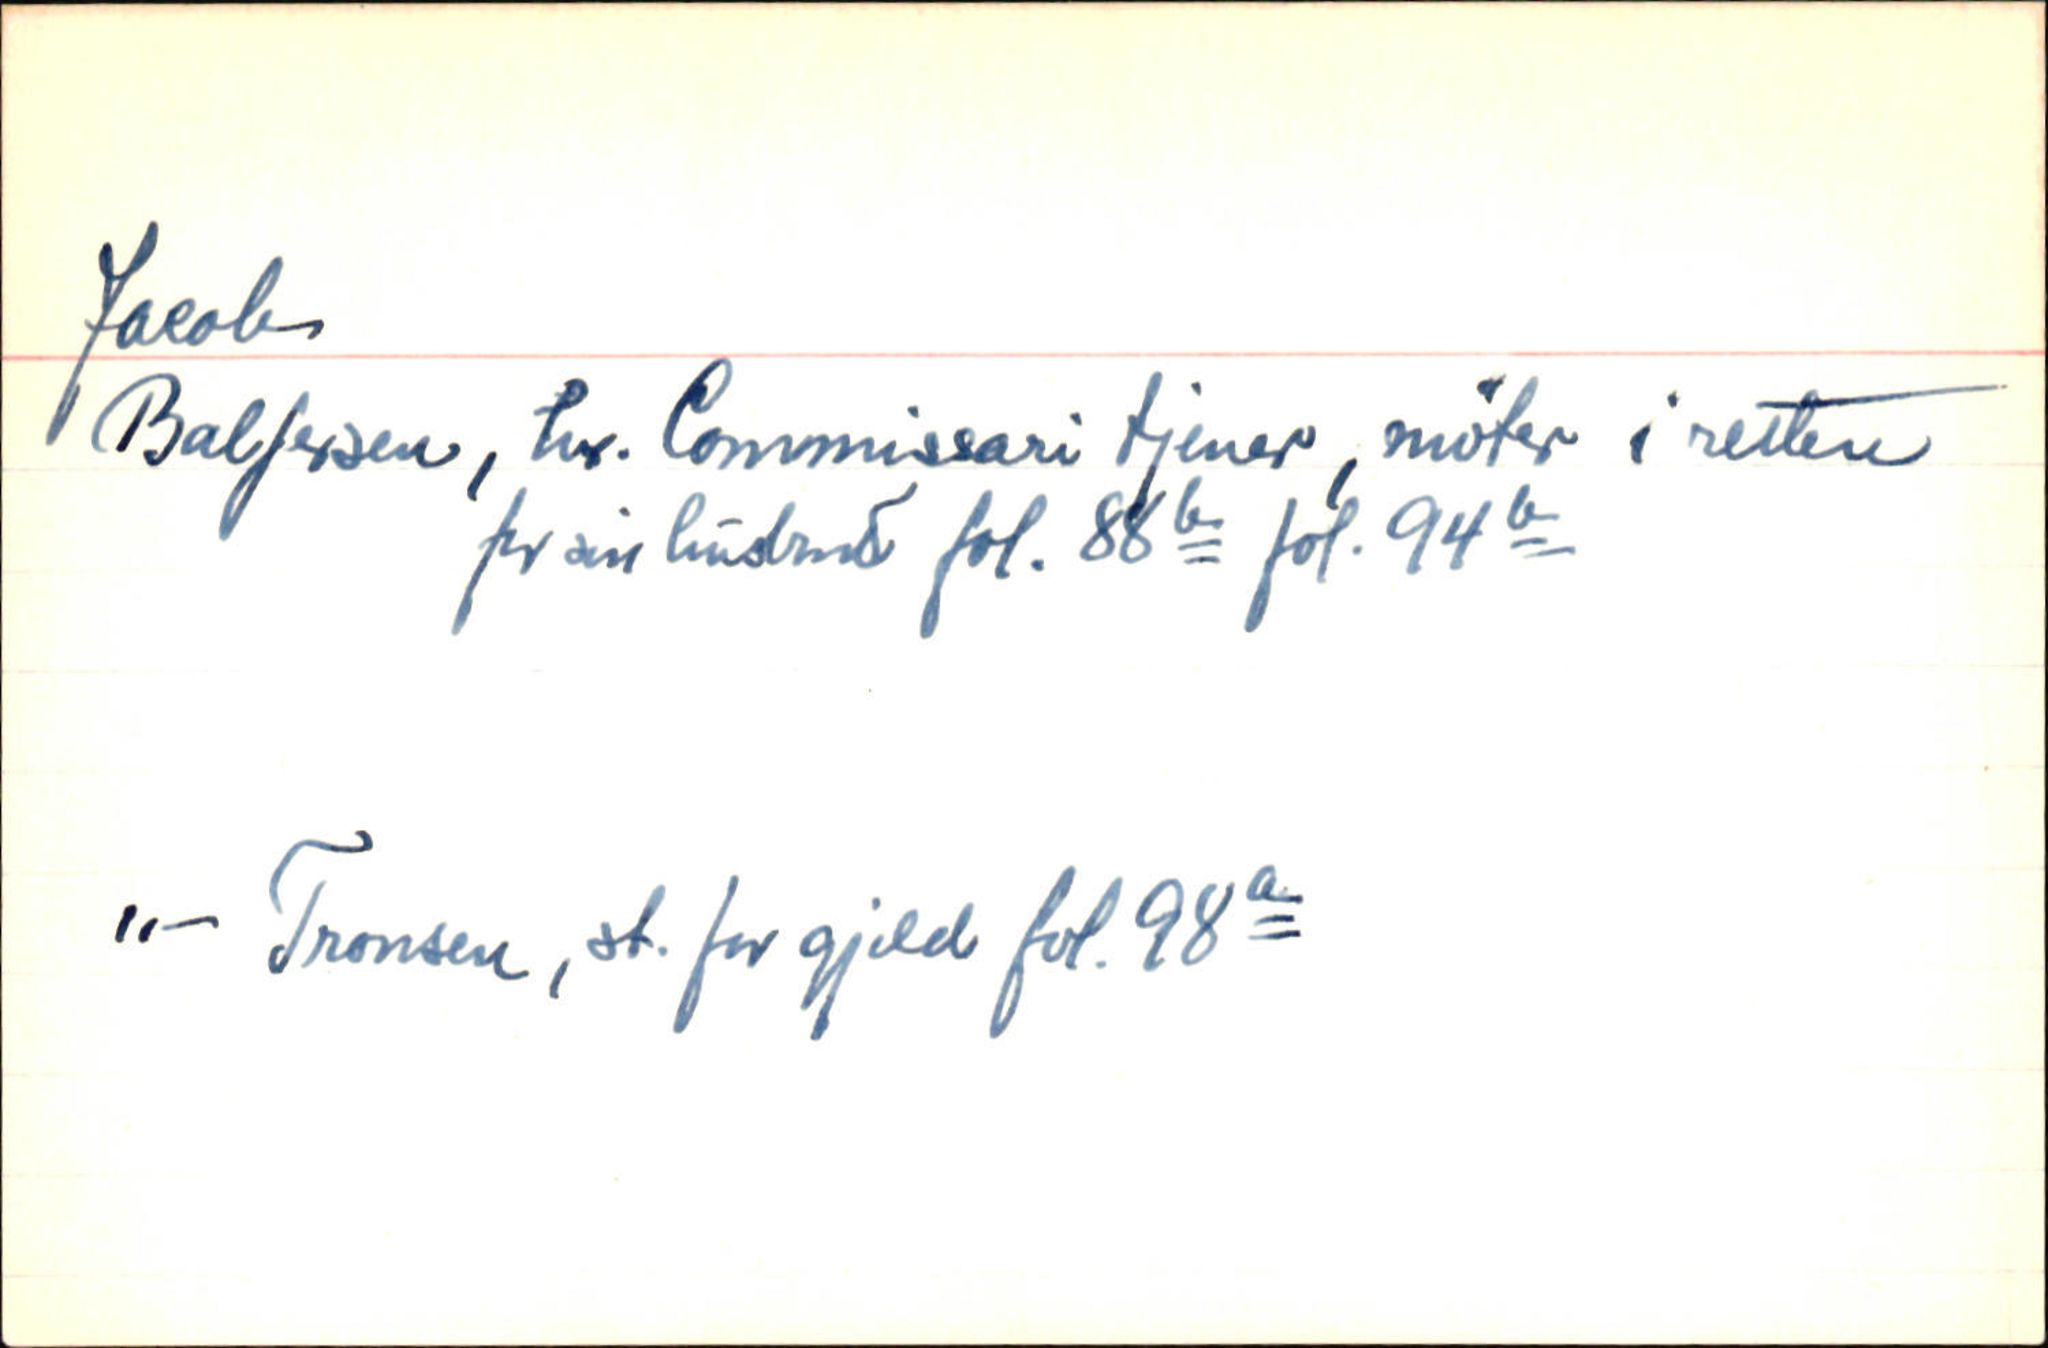 Jacob
Balfersen, hr. Commissari tjener, möter i retten
for sin husbond fol. 88b fol. 94b
"— Tronsen, st. for gjeld fol. 98a